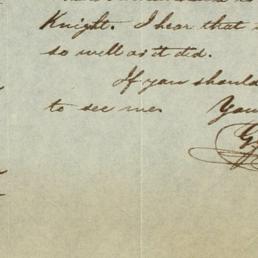 Knight. I hear that
so well as it did.
If you should
to see me. You
G